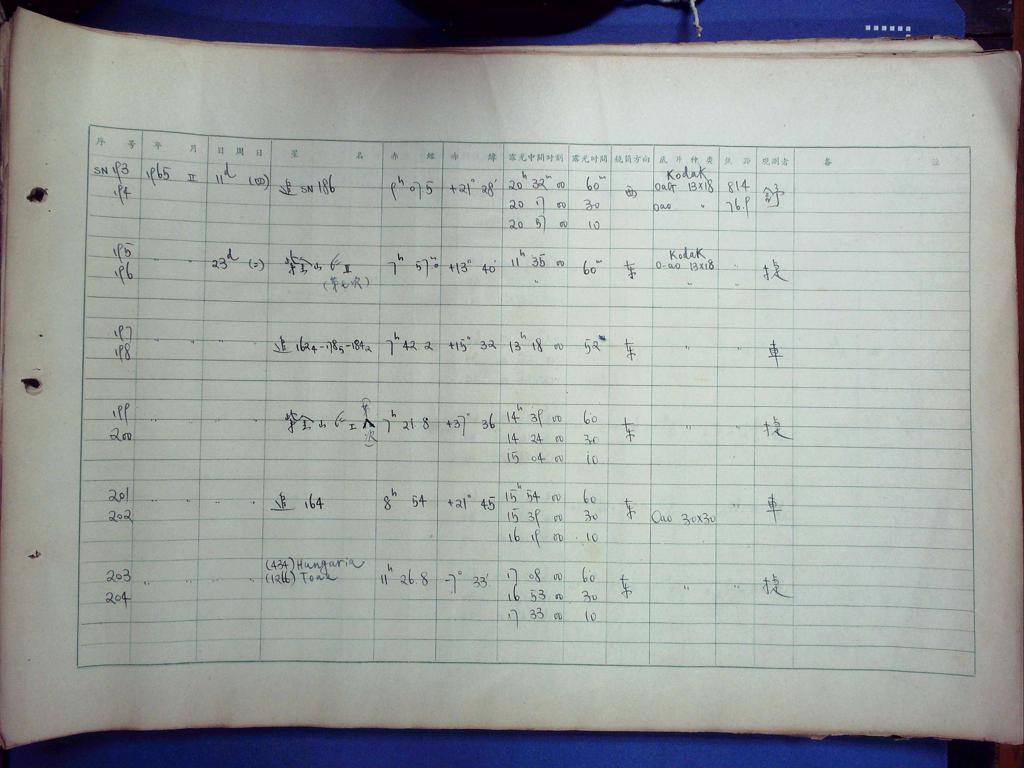 序 号 年 月 日 周 日 星 名 赤 经 赤 纬 露光中间时刻 露光时间 镜筒方向 底 片 种 类 焦 距 观测者 备 註
SN 193 1965 II 11d (四) 追 SN 186 9h 07.5 +21° 28' 20h 32m 00 60m 西 Kodak OaO 13×18 814 舒
194 20 17 00 30 Oao " 76.9
20 57 00 10
195 " " 23d (二) 紫金山 II 7h 57m.0 +13° 40' 11h 35 00 60m 东 Kodak O-ao 13×18 " 捷
196 (第七次) " " "
197 " " " " 追 1624-1785-1842 7h 42 2 +15° 32 13h 18 00 52m 东 " " 車
198
199 " " " " 紫金山 I 7h 21 8 +37° 36 14h 39 00 60 东 " " 捷
200 次 14 24 00 30
15 04 00 10
201 " " " " 追 164 8h 54 +21° 45 15h 54 00 60 东 " 車
202 15 39 00 30 Oao 30×30
16 19 00 10
203 " " " " (434) Hungaria 11h 26.8 -7° 33' 17 08 00 60 东 " " 捷
204 (1266) Tone 16 53 00 30
17 33 00 10